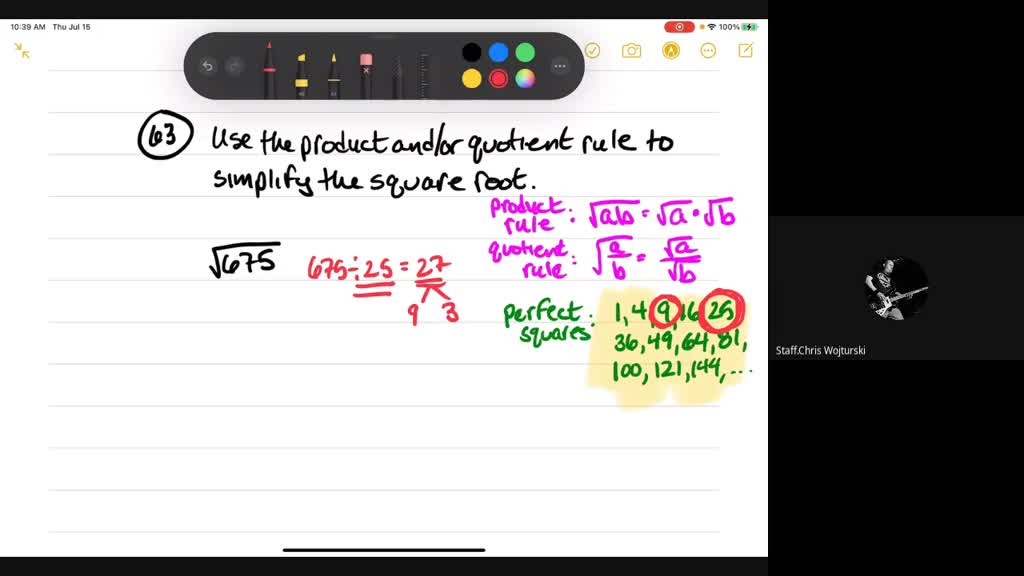 10:39 AM Thu Jul 15
100%
63 Use the product and/or quotient rule to
simplify the square root.
product rule: √ab = √a • √b
quotient rule: √a/b = √a/√b
√675
675 ÷ 25 = 27
9 3
perfect squares: 1, 4, 9, 16, 25,
36, 49, 64, 81,
100, 121, 144, ...
Staff.Chris Wojturski